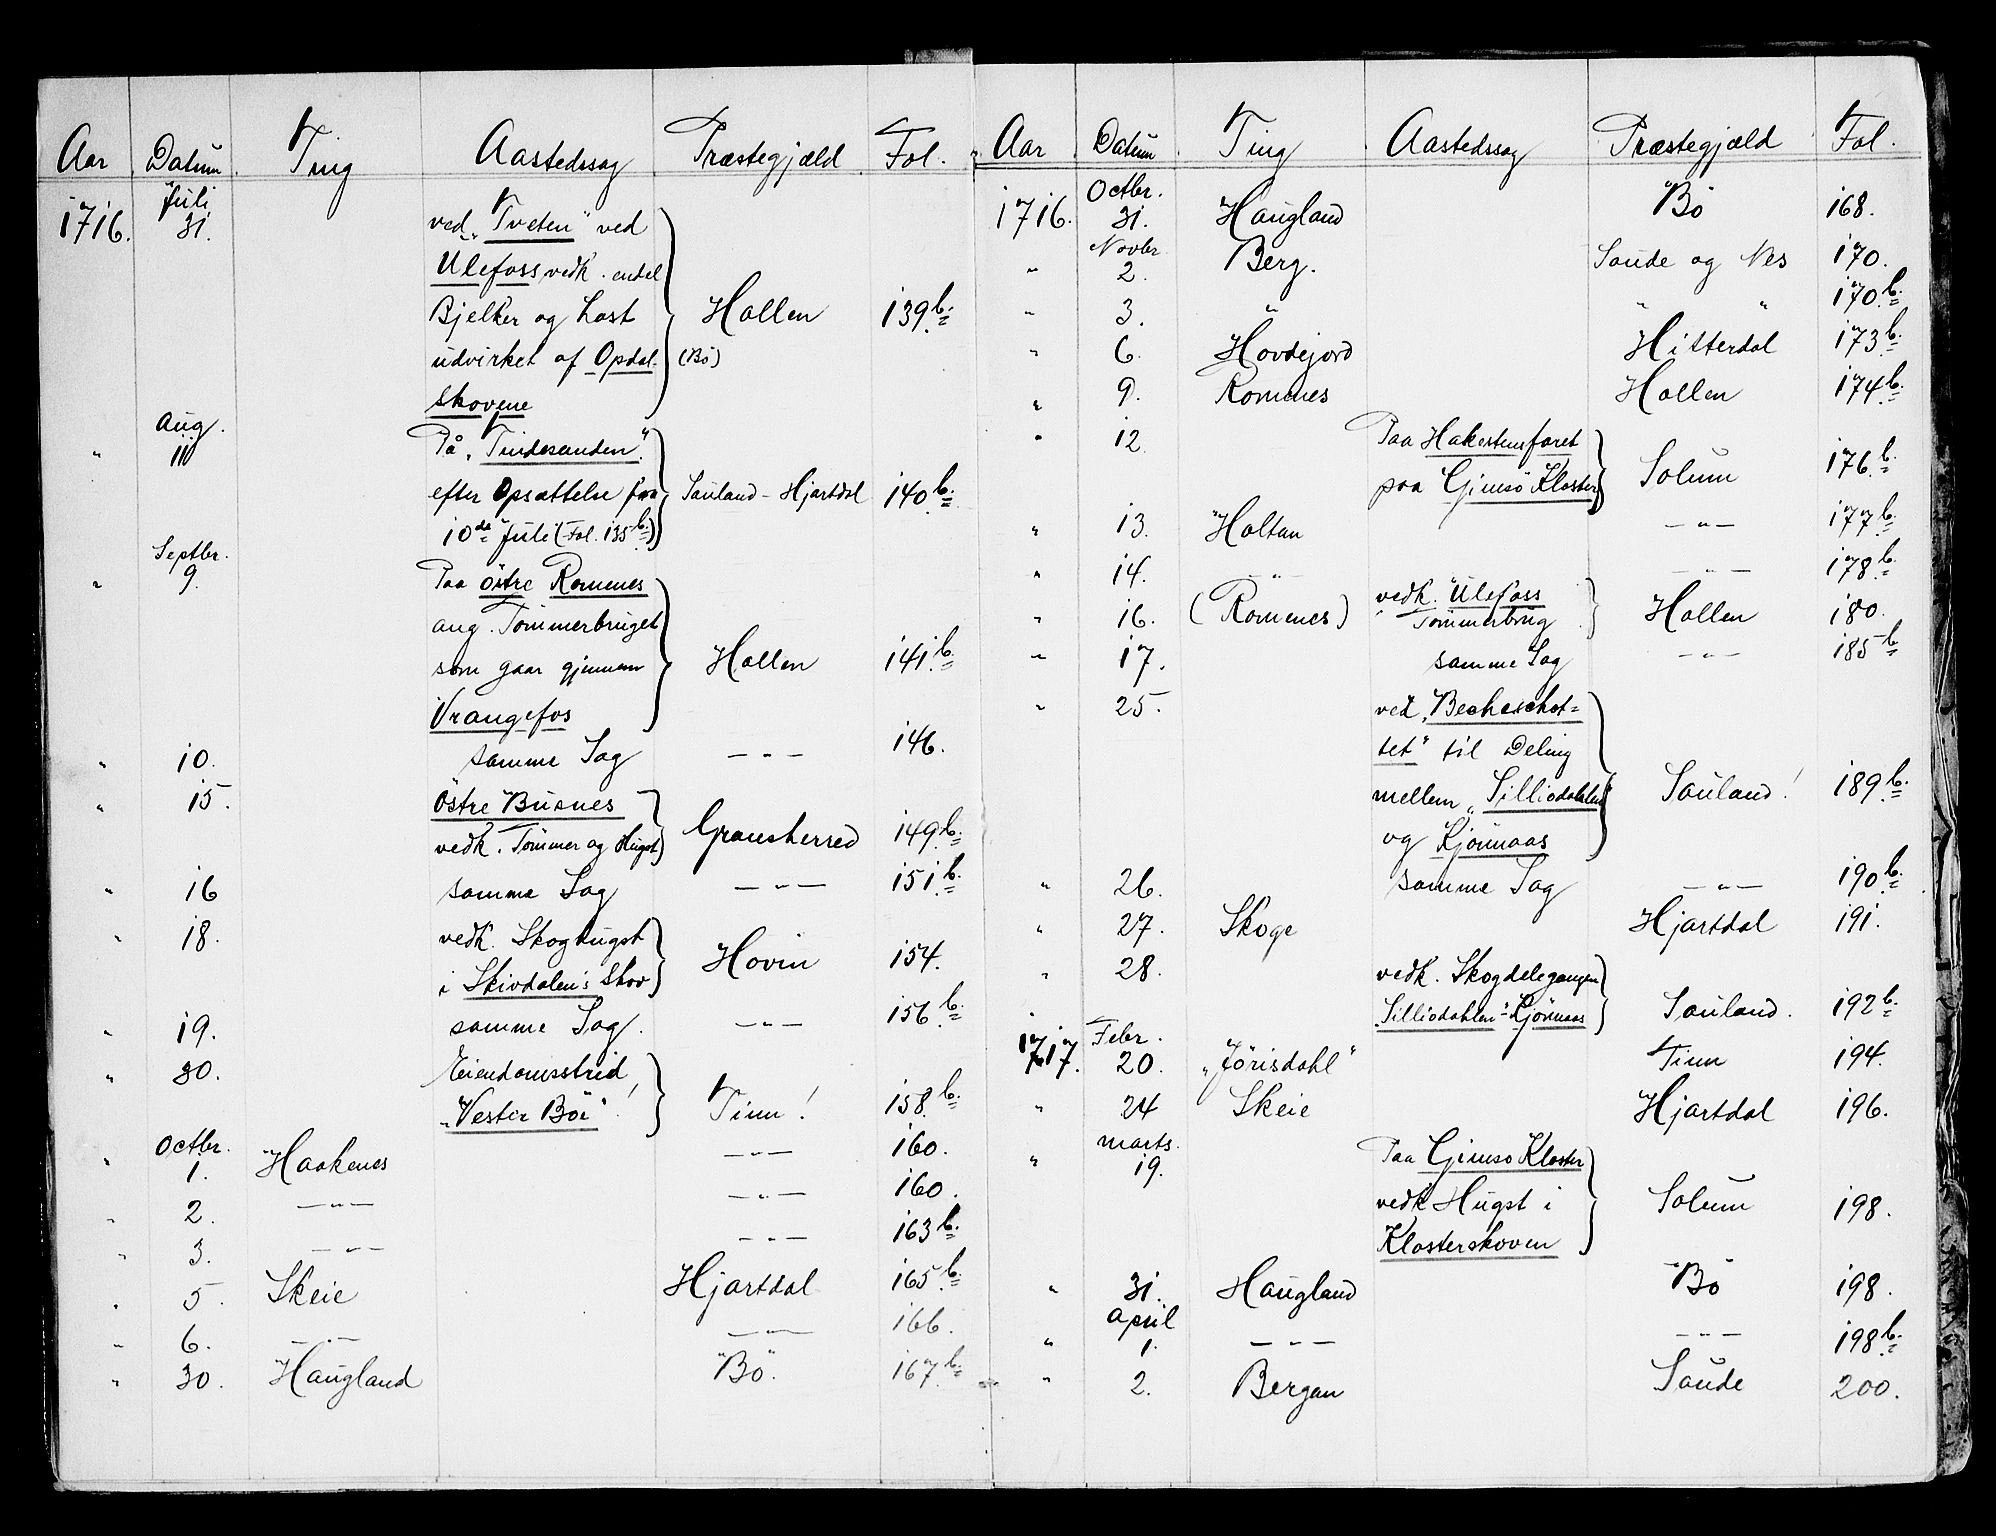 Aar Datum Ting Aastedssag Præstegjæld Fol.
1716. Juli 31. ved „Tveten" ved
Ulefoss vedk. endel
Bjelker og Last Hollen 139 b.
udvirket af Opdal- (Bö)
skovene
" Aug. 11 På „Tindesanden".
efter Opsættelse fra Sauland - Hjartdal 140 b.
10de Juli (Fol. 135 b.)
" Septbr. 9. Paa östre Romenes
ang. Tømmerbruget
som gaar gjennem Hollen 141 b.
Vrangefos
" 10. samme Sag — " — 146.
" 15. Östre Busnes
vedk. Tømmer og Hugst Gransherred 149 b.
" 16 samme Sag — " — 151 b.
" 18. vedk. Skoghugst
i Skivdalen's Skov Hovin 154.
" 19. samme Sag. — " — 156 b.
" 30. Eiendomsstrid
„Vester Böe"! Tinn! 158 b.
" Octbr. 1. Haakenes — " — 160.
" 2. — " — — " — 160.
" 3. — " — — " — 163 b.
" 5. Skeie Hjartdal 165 b.
" 6. — " — — " — 166.
" 30. Haugland Bö. 167 b.
Aar Datum Ting Aastedssag Præstegjæld Fol.
1716. Octbr. 31. Haugland Bö 168.
" Novbr 2. Berg. Saude og Nes 170.
" 3. " " " 170 b.
" 6. Hovdejord Hitterdal 173 b.
" 9. Romenes Hollen 174 b.
" 12 Paa Hakestensfaret
paa Gimsö Kloster Solum 176 b.
" 13. Holtan — " — 177 b.
" 14. — " — — " — 178 b.
" 16. (Romenes) vedk. Ulefoss
Tømmerbrug Hollen 180.
" 17. samme Sag — " — 185 b.
" 25. ved „Becheschot=
tet" til Deling
mellem „Silliodahlen" Sauland! 189 b.
og Kjönaas
" 26. samme Sag — " — 190 b.
" 27. Skoge Hjartdal 191.
" 28. vedk. Skogdelegangen
„Silliodahlen"-Kjönaas Sauland. 192 b.
1717. Febr. 20. „Jörisdahl" Tinn 194.
" 24 Skeie Hjartdal 196.
" marts. 19. Paa Gimsö Kloster
vedk Hugst i Solum 198.
Klosterskoven
" 31. Haugland Bö 198.
" April 1. — " — — " — 198 b.
" 2. Bergan Saude 200.